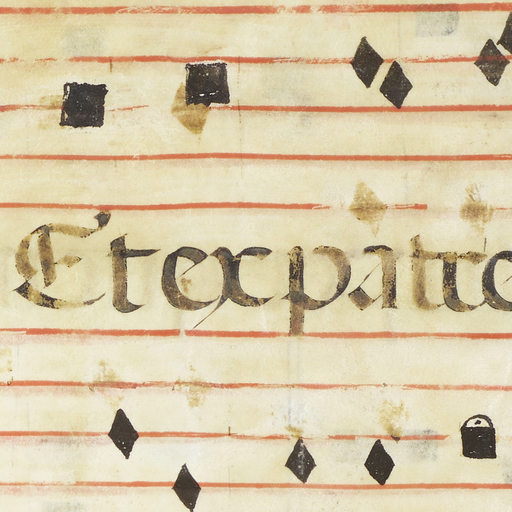 Et ex patre